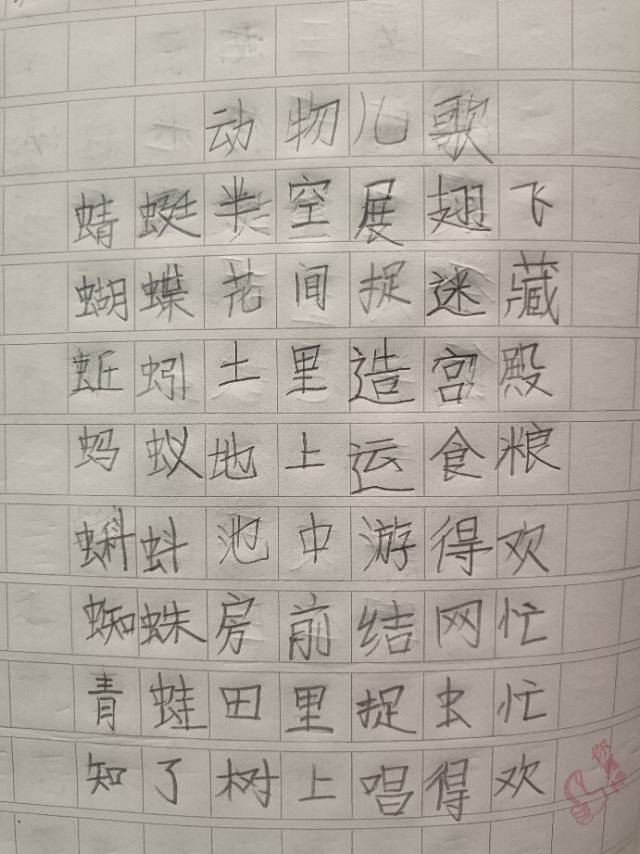 动物儿歌
蜻蜓半空展翅飞
蝴蝶花间捉迷藏
蚯蚓土里造宫殿
蚂蚁地上运食粮
蝌蚪池中游得欢
蜘蛛房前结网忙
青蛙田里捉虫忙
知了树上唱得欢